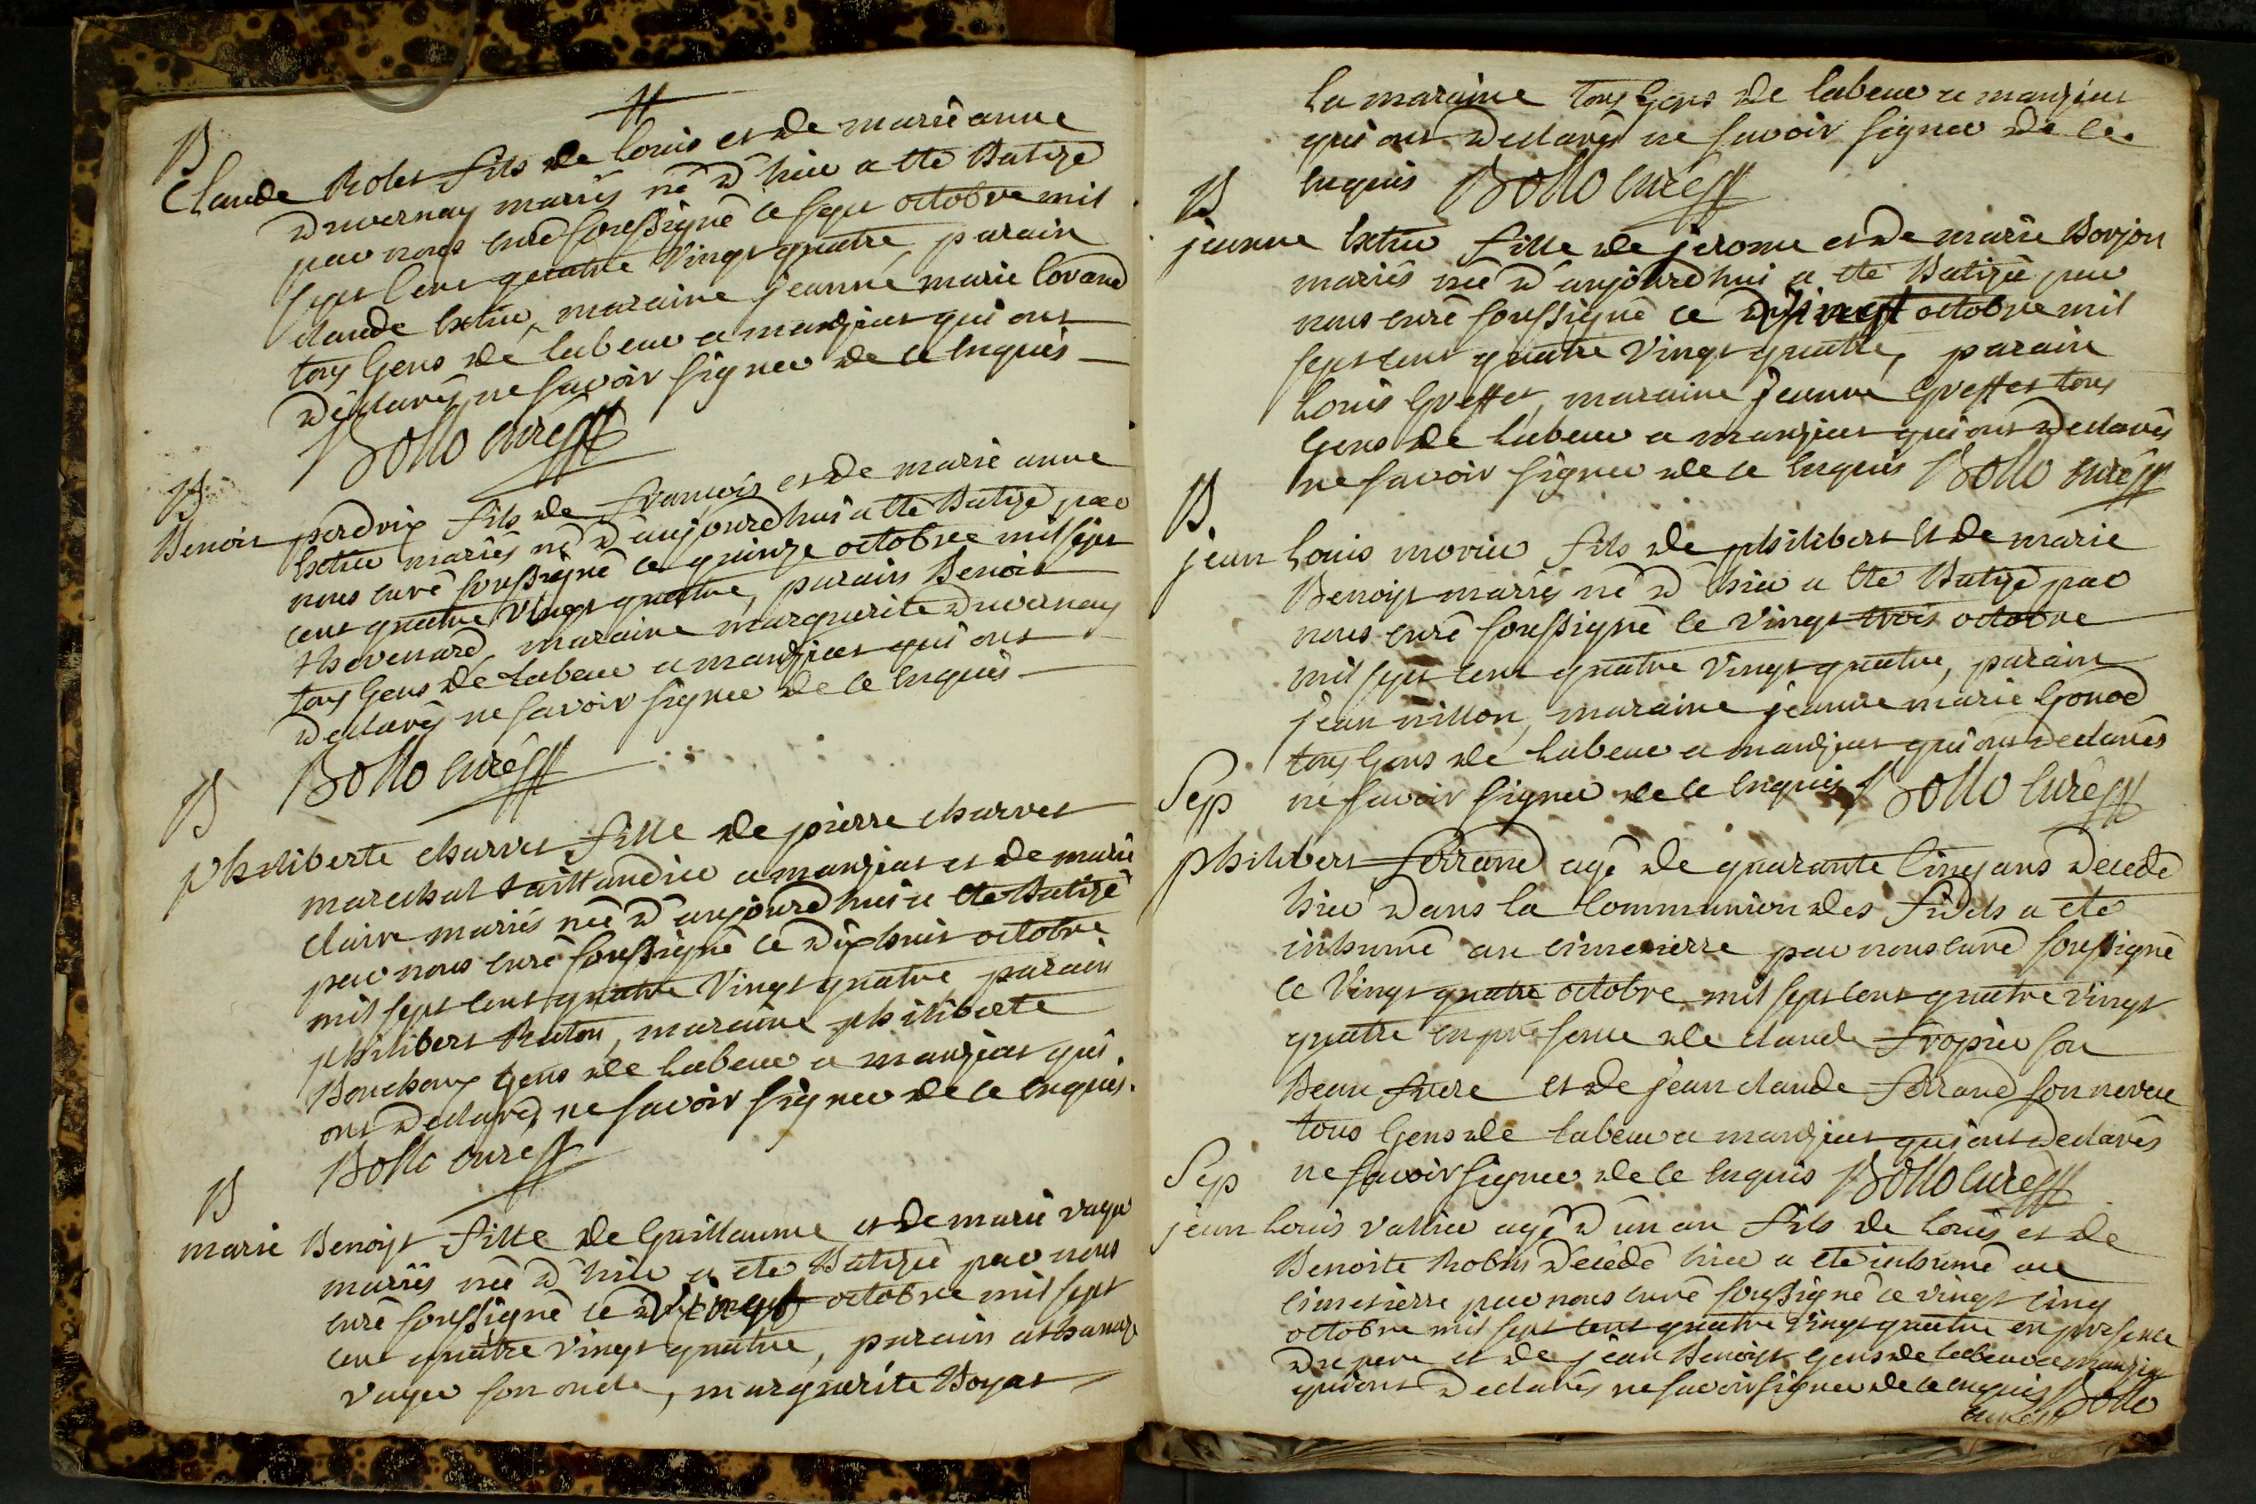 11
B
Claude Robet fils de louis et de marie anne
duvernay mariés né d'hier a ete Batizé
par nous curé soussigné ce sept octobre mil
sept cent quatre vingt quatre, parain
claude extier, maraine jeanne marie
tous gens de labeur a manziat qui ont
déclarés ne savoir signer de ce enquis
Bollo curé
B
Benoit perdrix fils de françois et de marie anne
extier mariés né d'aujourdhui a ete Batizé par
nous curé soussigné ce quinze octobre mil sept
cent quatre vingt quatre, parain Benoit
thevenard, maraine marguerite duvernay
tous gens de labeur a manziat qui ont
declarés ne savoir signer de ce enquis
Bollo curé
B
philiberte charvet fille de pierre charvet
marechal taillandier a manziat et de marie
claire mariés née d'aujourdhui a ete Batizé
par nous curé soussigné ce dix huit octobre
mil sept cent quatre vingt quatre parain
philibert Raton, maraine philiberte
Bouchoux gens de labeur a manziat qui
ont declarés ne savoir signer de ce enquis.
Bollo curé
B
marie Benoist fille de guillaume et de marie vayer
mariés née d'hier a ete Batizée par nous
curé soussigné ce vingt octobre mil sept
cent quatre vingt quatre, parain athanaze
vayer son oncle, marguerite Boyat
la maraine tous gens de labeur a manziat
qui ont declarés ne savoir signer de ce
enquis Bollo curé
B
jeanne extier fille de jerome et de marie Borjon
mariés née d'aujourdhui a ete Batizée par
nous curé soussigné ce vingt octobre mil
sept cent quatre vingt quatre, parain
louis greffet, maraine jeanne greffet tous
gens de labeur a manziat qui ont declarés
ne savoir signer de ce enquis Bollo curé
B.
jean louis morier fils de philibert et de marie
Benoist mariés né d'hier a ete Batizé par
nous curé soussigné le vingt trois octobre
mil sept cent quatre vingt quatre, parain
jean nillon, maraine jeanne marie gonod
tous gens de labeur a manziat qui ont declarés
Sep ne savoir signer de ce enquis Bollo curé
philibert ferrand agé de quarante cinq ans decedé
hier dans la Communion des fidels a ete
inhumé au cimetierre par nous curé soussigné
ce vingt quatre octobre mil sept cent quatre vingt
quatre en presence de claude fropier son
Beau frere et de jean claude ferrand son neveu
tous gens de labeur a manziat qui ont declarés
Sep ne savoir signer de ce enquis Bollo curé
jean louis vallier agé d'un an fils de louis et de
Benoite Robin decedé hier a ete inhumé au
cimetierre par nous curé soussigné ce vingt cinq
octobre mil sept cent quatre vingt quatre en presence
du pere et de jean Benoist gens de labeur a manziat
qui ont declarés ne savoir signer de ce enquis Bollo
curé